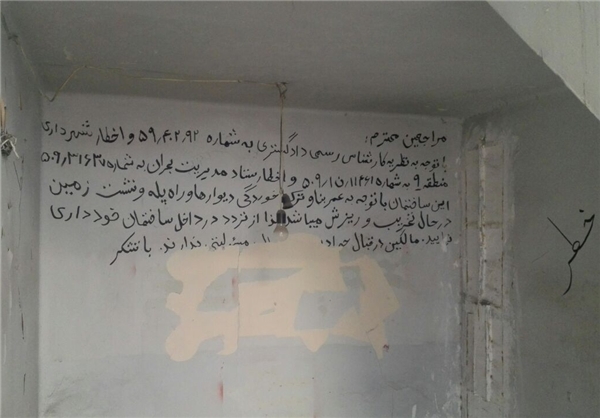 مراجعین محترم:
با توجه به نظریه کارشناس رسمی دادگستری به شماره ۵۹٫۴٫۲٫۹۲ و اخطار شهرداری
منطقه ۹ به شماره ۵۰۹٫۱۵٫۱۱۴۶۱ و اخطار ستاد مدیریت بحران به شماره
این ساختمان با توجه به عمر بنا و ترک خوردگی دیوارها و راه پله و نشست زمین
در حال تخریب و ریزش میباشد لذا از تردد در داخل ساختمان خودداری
فرمایید. مالکین در قبال مسئولیتی ندارند. با تشکر
خطر